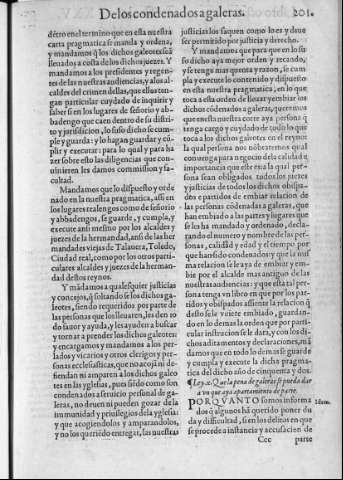 De los condenados a galeras. 201.
dētro en el termino que en esta nuestra
carta pragmatica se manda y ordena,
y mandamos q̄ los dichos galeotes seā
llenados a costa de los dichos juezes. Y
mandamos a los presidentes y regen-
tes de las nuestras audiencias, y a los al-
caldes del crimen dellas, que ellos ten-
gan particular cuydado de inquirir y
saber si en los lugares de señorio y ab-
badengo que caen dentro de su distri-
to y jurisdicion, lo suso dicho se cum-
ple y guarda: y lo hagan guardar y cū-
plir y executar: para lo qual y para ha
zer sobre esto las diligencias que con-
uinieren les damos commission y fa-
cultad.
Mandamos que lo dispuesto y orde
nado en la nuestra pragmatica, assi en
los lugares realengos como de señorio
y abbadengos, se guarde, y cumpla, y
execute ansi mesmo por los alcaldes y
juezes de la hermandad, ansi de las her
mandades viejas de Talauera, Toledo,
Ciudad real, como por los otros parti-
culares alcaldes y juezes de la herman-
dad destos reynos.
Y mādamos a qualesquier justicias
y concejos, q̄ soltando se los dichos ga-
leotes, siendo requeridos por parte de
las personas que los lleuaren, les den to
do fauor y ayuda, y les ayuden a buscar
y tornar a prender los dichos galeotes:
y encargamos y mandamos a los per-
lados y vicarios y otros clerigos y per-
sonas ecclesiasticas, que no acojā ni de-
fiendan ni amparen a los dichos galeo
tes en las yglesias, pues siēdo como son
condenados a seruicio personal de ga-
leras, no deuen ni pueden gozar de la
immunidad y priuilegios de la yglesia:
y que acogiendolos y amparandolos,
y no los queriēdo entregar, las nuestras
justicias los saquen como lo es y deue
ser permitido por justicia y derecho.
Y mandamos que para que en lo su
so dicho aya mejor orden y recaudo,
y se tenga mas quenta y razon, se cum
pla y execute lo contenido y dispuesto
en esta nuestra pragmatica, en lo que
toca a esta orden de lleuar y embiar los
dichos cōdenados a galeras, queremos
que en esta nuestra corte aya persona q̄
tenga cargo y cuydado de todo lo que
toca a los dichos galeotes en el reyno:
la qual persona nos nōbraremos qual
conuenga para negocio de la calidad e
importancia que este es: a la qual per-
sona sean obligados todos los juezes
y justicias de todos los dichos obispa-
dos y partidos de embiar relacion de
las personas cōdenadas a galeras, que
han embiado a las partes y lugares que
se los ha mandado y ordenado, decla-
rando el numero y nombre de las per-
sonas, calidad y edad y el tiempo por
que han sido condenados: y que la mis
ma relacion se le aya de embiar y em-
bie por el alcalde mas antiguo de las
nuestras audiencias: y que esta tal per-
sona tenga vn libro en que por los par-
tidos y obispados assiente la relacion q̄
desto se le viere embiado, guardan-
do en lo demas la orden que por parti-
cular instruccion se le dara, y con los di-
chos aditamentos y declaraciones, mā
damos que en todo lo demas se guarde
y cumpla y execute la dicha pragma-
tica del dicho año de cincuenta y dos.
¶ Ley. x. Que la pena de galeras se pueda dar
a vn que aya apartamiento de parte.
PORQVANTO somos informa
dos q̄ algunos hā querido poner du
da y difficultad, si en los delitos en que
se procede a instancia y accusacion de
Idem.
Ccc parte